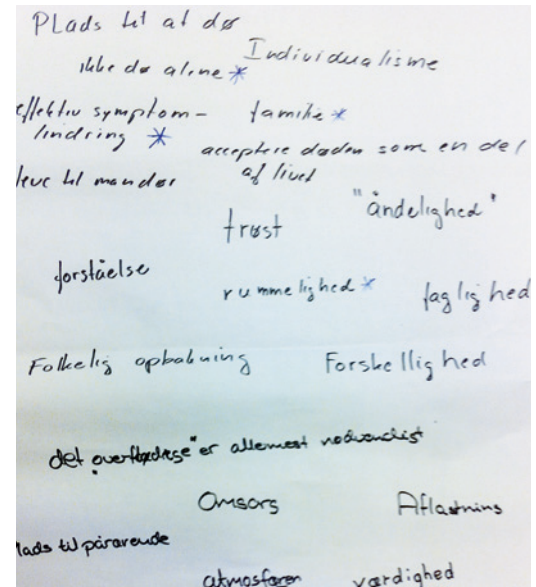 PLads til at dø
Individualisme
ikke dø alene *
effektiv symptom-
lindring *
familie *
acceptere døden som en del
af livet
leve til man dør
"åndelighed"
trøst
forståelse
rummelighed *
faglighed
Folkelig opbakning
Forskellighed
det "overflødige" er allermest nødvendigt
Omsorg
Aflastning
Plads til pårørende
atmosfæren
værdighed